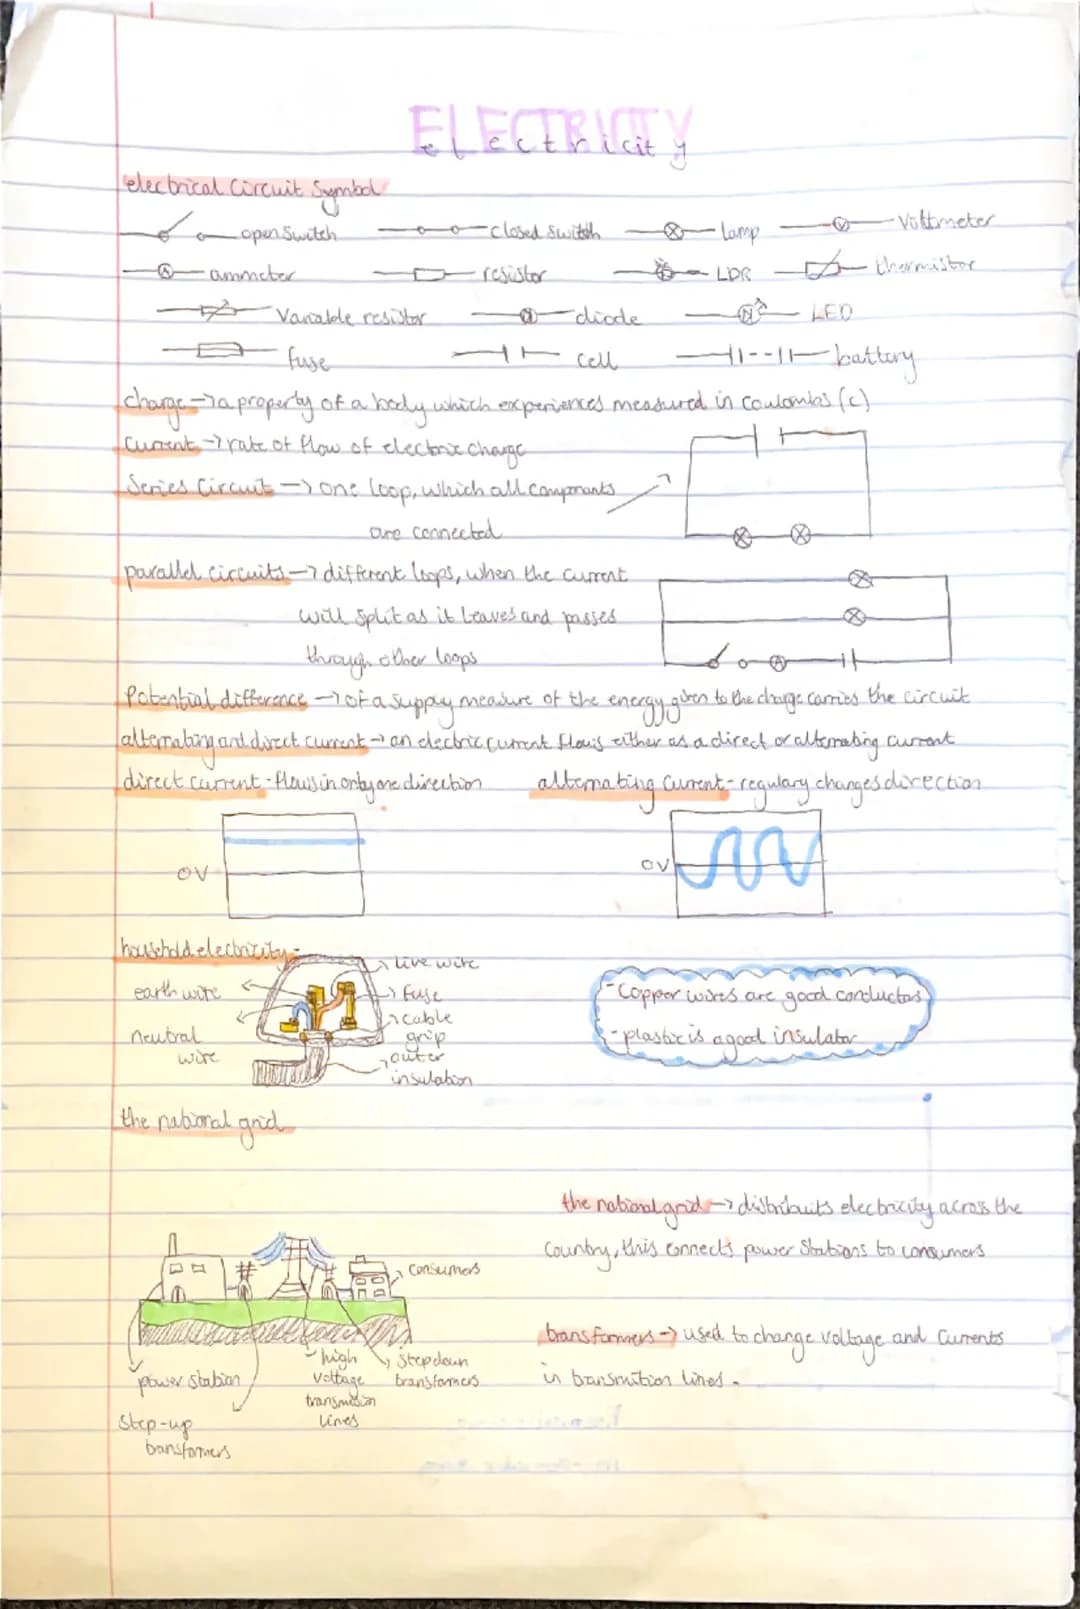 ELECTRICITY
electricity
electrical Circuit Symbol
open Switch closed switch Lamp Voltmeter
ammeter resistor LDR thermistor
Variable resistor diode LED
fuse cell battery
charge → a property of a body which experiences measured in coulombs (c)
Current → rate of flow of electric charge
Series Circuit → one loop, which all componants
are connected
parallel circuits → different loops, when the current
will split as it leaves and passes
through other loops
Potential difference → of a supply measure of the energy given to the charge carries the circuit
alternating and direct current → an electric current flows either as a direct or alternating current
direct current - flows in only one direction alternating current - regulary changes direction
0V 0V
household electricity -
live wire
earth wire fuse
cable
grip
neutral
wire
outer
insulation
- Copper wires are good conductors
- plastic is a good insulator
the national grid
the national grid → distributs electricity across the
Country, this connects power Stations to consumers
consumers
transformers → used to change voltage and currents
in transmition lines.
power station
high
voltage
transmission
lines
Step down
transfomers
Step-up
transfomers